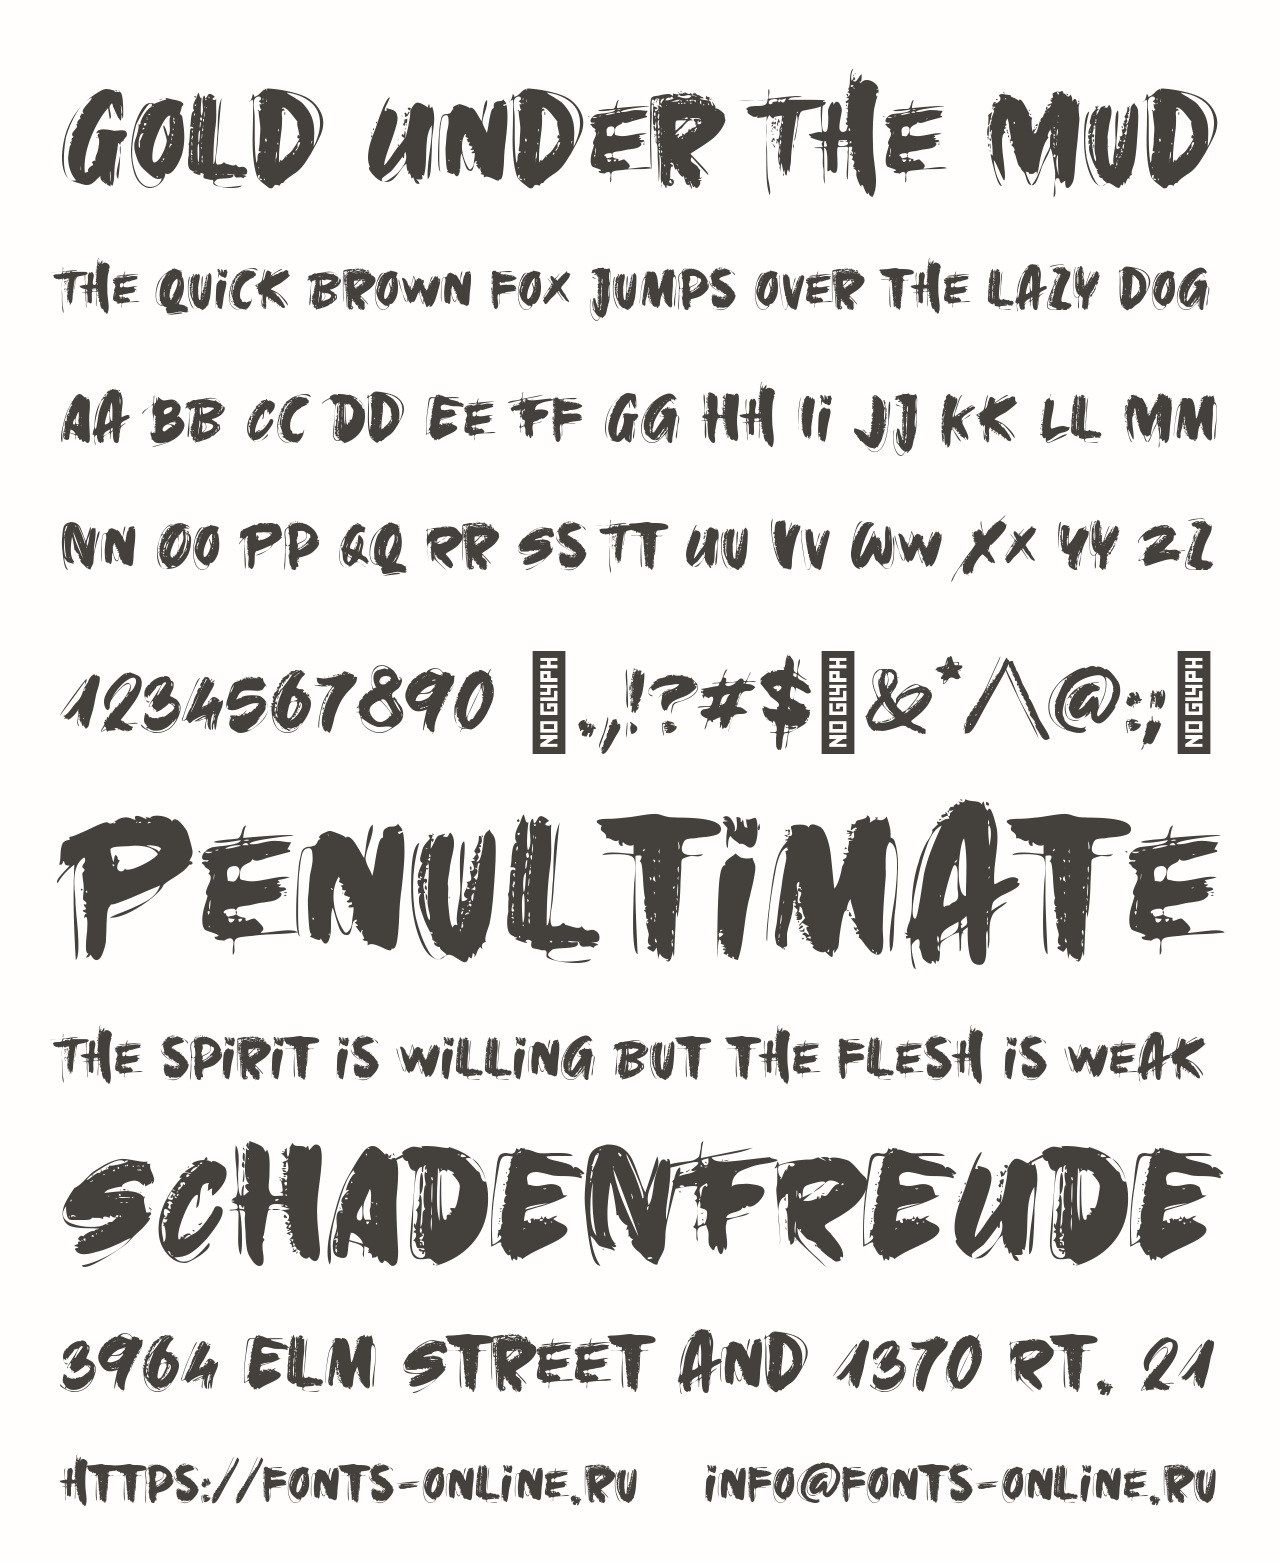 GOLD UNDER THE MUD
THE QUiCK BROWN FOX JUMPS OVER THE LAZY DOG
AA BB CC DD EE FF GG HH Ii JJ KK LL MM
NN OO PP QQ RR SS TT UU VV WW XX YY ZZ
1234567890 NO GLYPH.,!?#$NO GLYPH&*/\@:;NO GLYPH
PENULTiMATE
THE SPiRiT iS WiLLiNG BUT THE FLESH iS WEAK
SCHADENFREUDE
3964 ELM STREET AND 1370 RT. 21
HTTPS://FONTS-ONLiNE.RU iNFO@FONTS-ONLiNE.RU